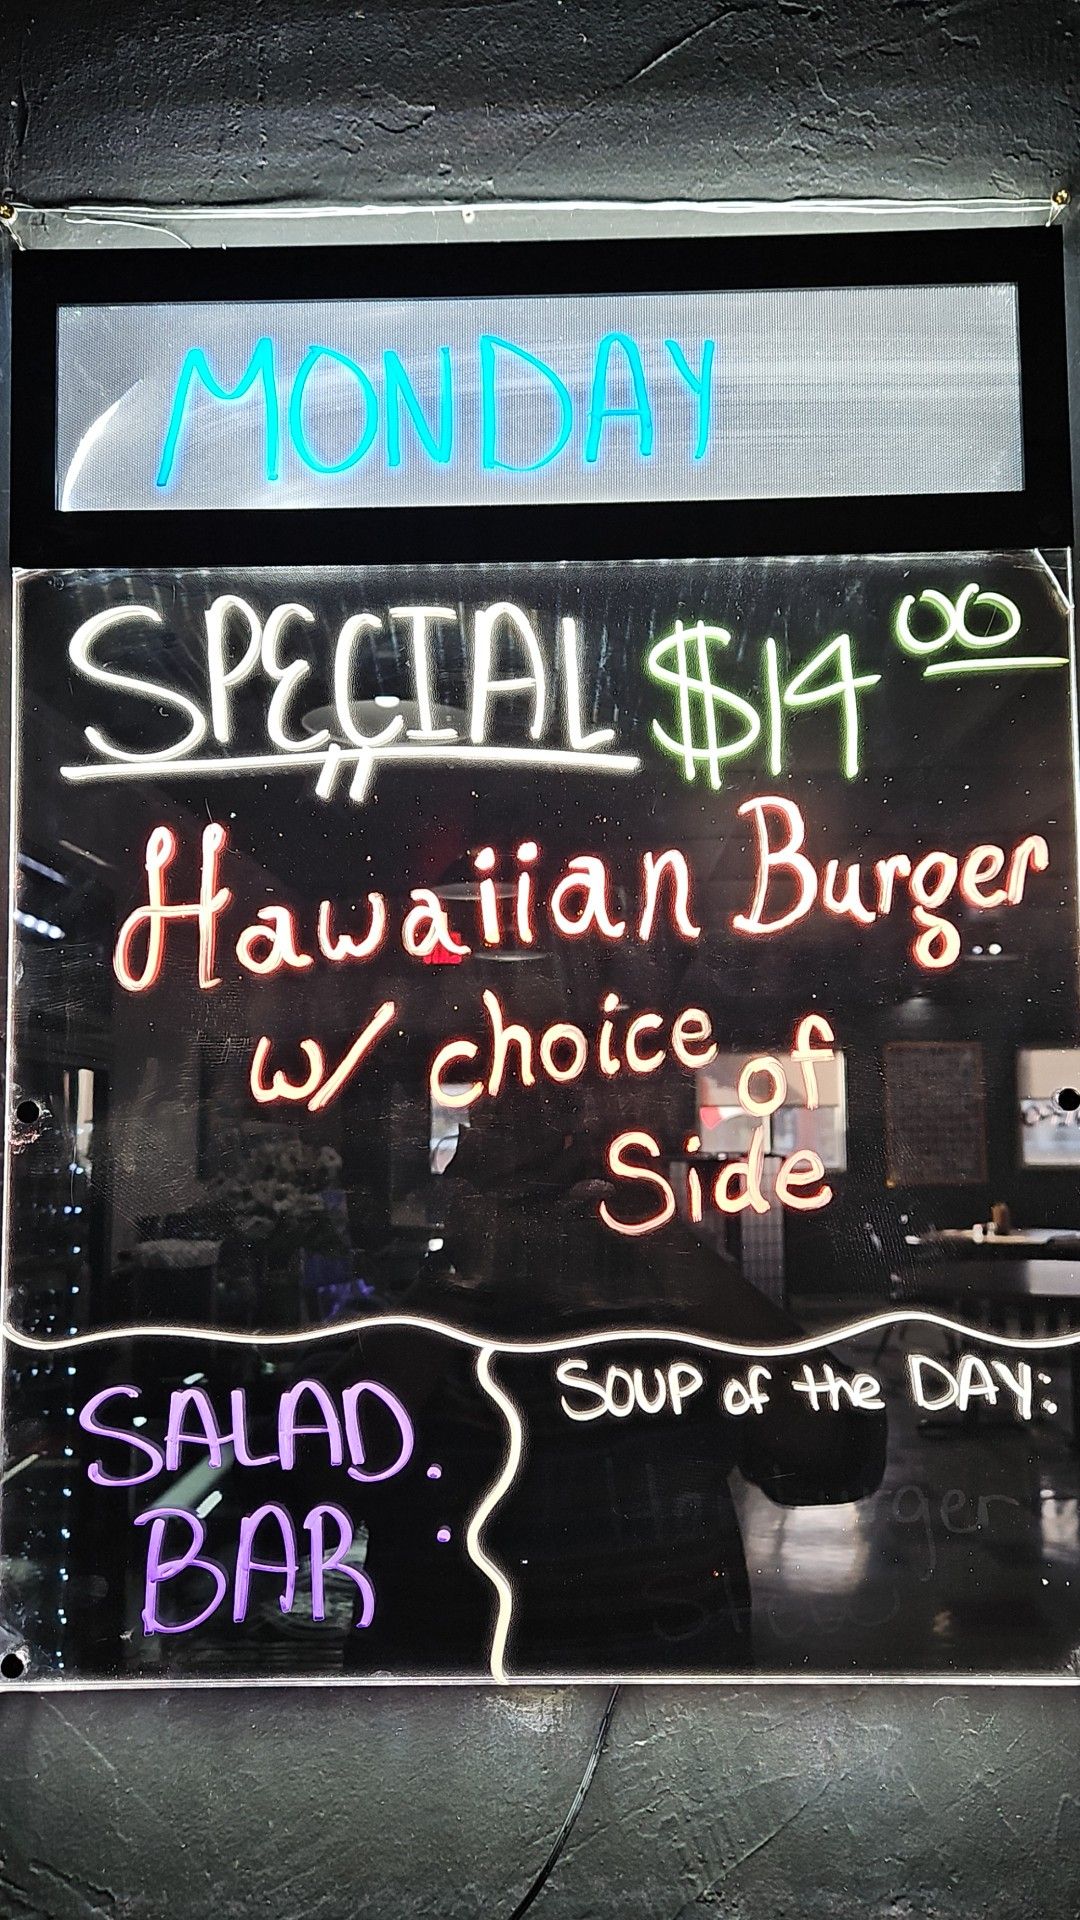 MONDAY
SPECIAL $14 00
Hawaiian Burger
w/ choice of
Side
SALAD
BAR
SOUP of the DAY: